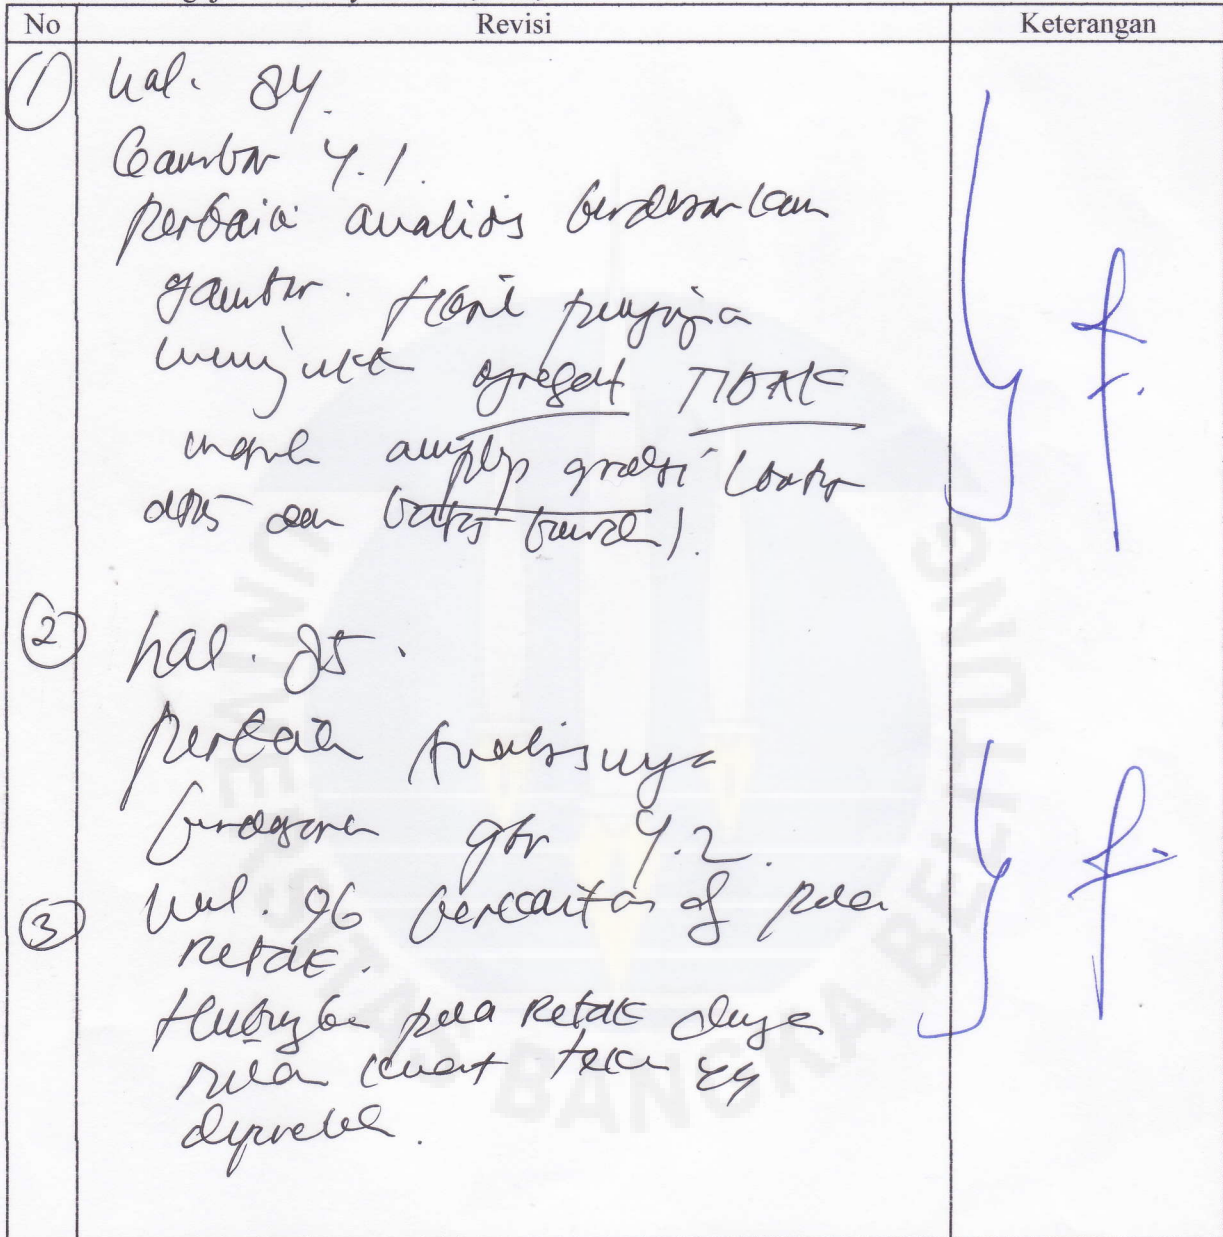 No Revisi Keterangan
1 hal. 84.
Gambar 4.1.
perbaiki analisis berdasarkan
gambar. Hasil pengujian
menunjukk agregat TIDAK
amplop gradasi (batas
atas dan batas bawah).
2 hal. 85.
perbaiki analisisnya
berdasarkan gbr 4.2.
3 hal. 96 berkaitan dg pola
retak.
Hubungkan pola retak dengan
nilai kuat tekan yg
diperoleh.
UNIVERSITAS BANGKA BELITUNG